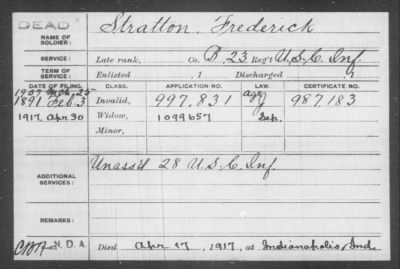 DEAD
NAME OF SOLDIER: Stratton, Frederick
SERVICE: Late rank, Co. D, 23 Reg't U.S.C. Inf.
TERM OF SERVICE: Enlisted , 1 Discharged , 1
DATE OF FILING. CLASS. APPLICATION NO. LAW. CERTIFICATE NO.
1907 Mch. 25 age
1891 Feb. 3 Invalid, 997.831 J 987.183
1917, Apr 30 Widow, 1099657 Sep.
Minor,
ADDITIONAL SERVICES: Unass'd 28 U.S.C. Inf.
REMARKS:
N.D.A.
Died Apr. 17, 1917, at Indianapolis, Ind.